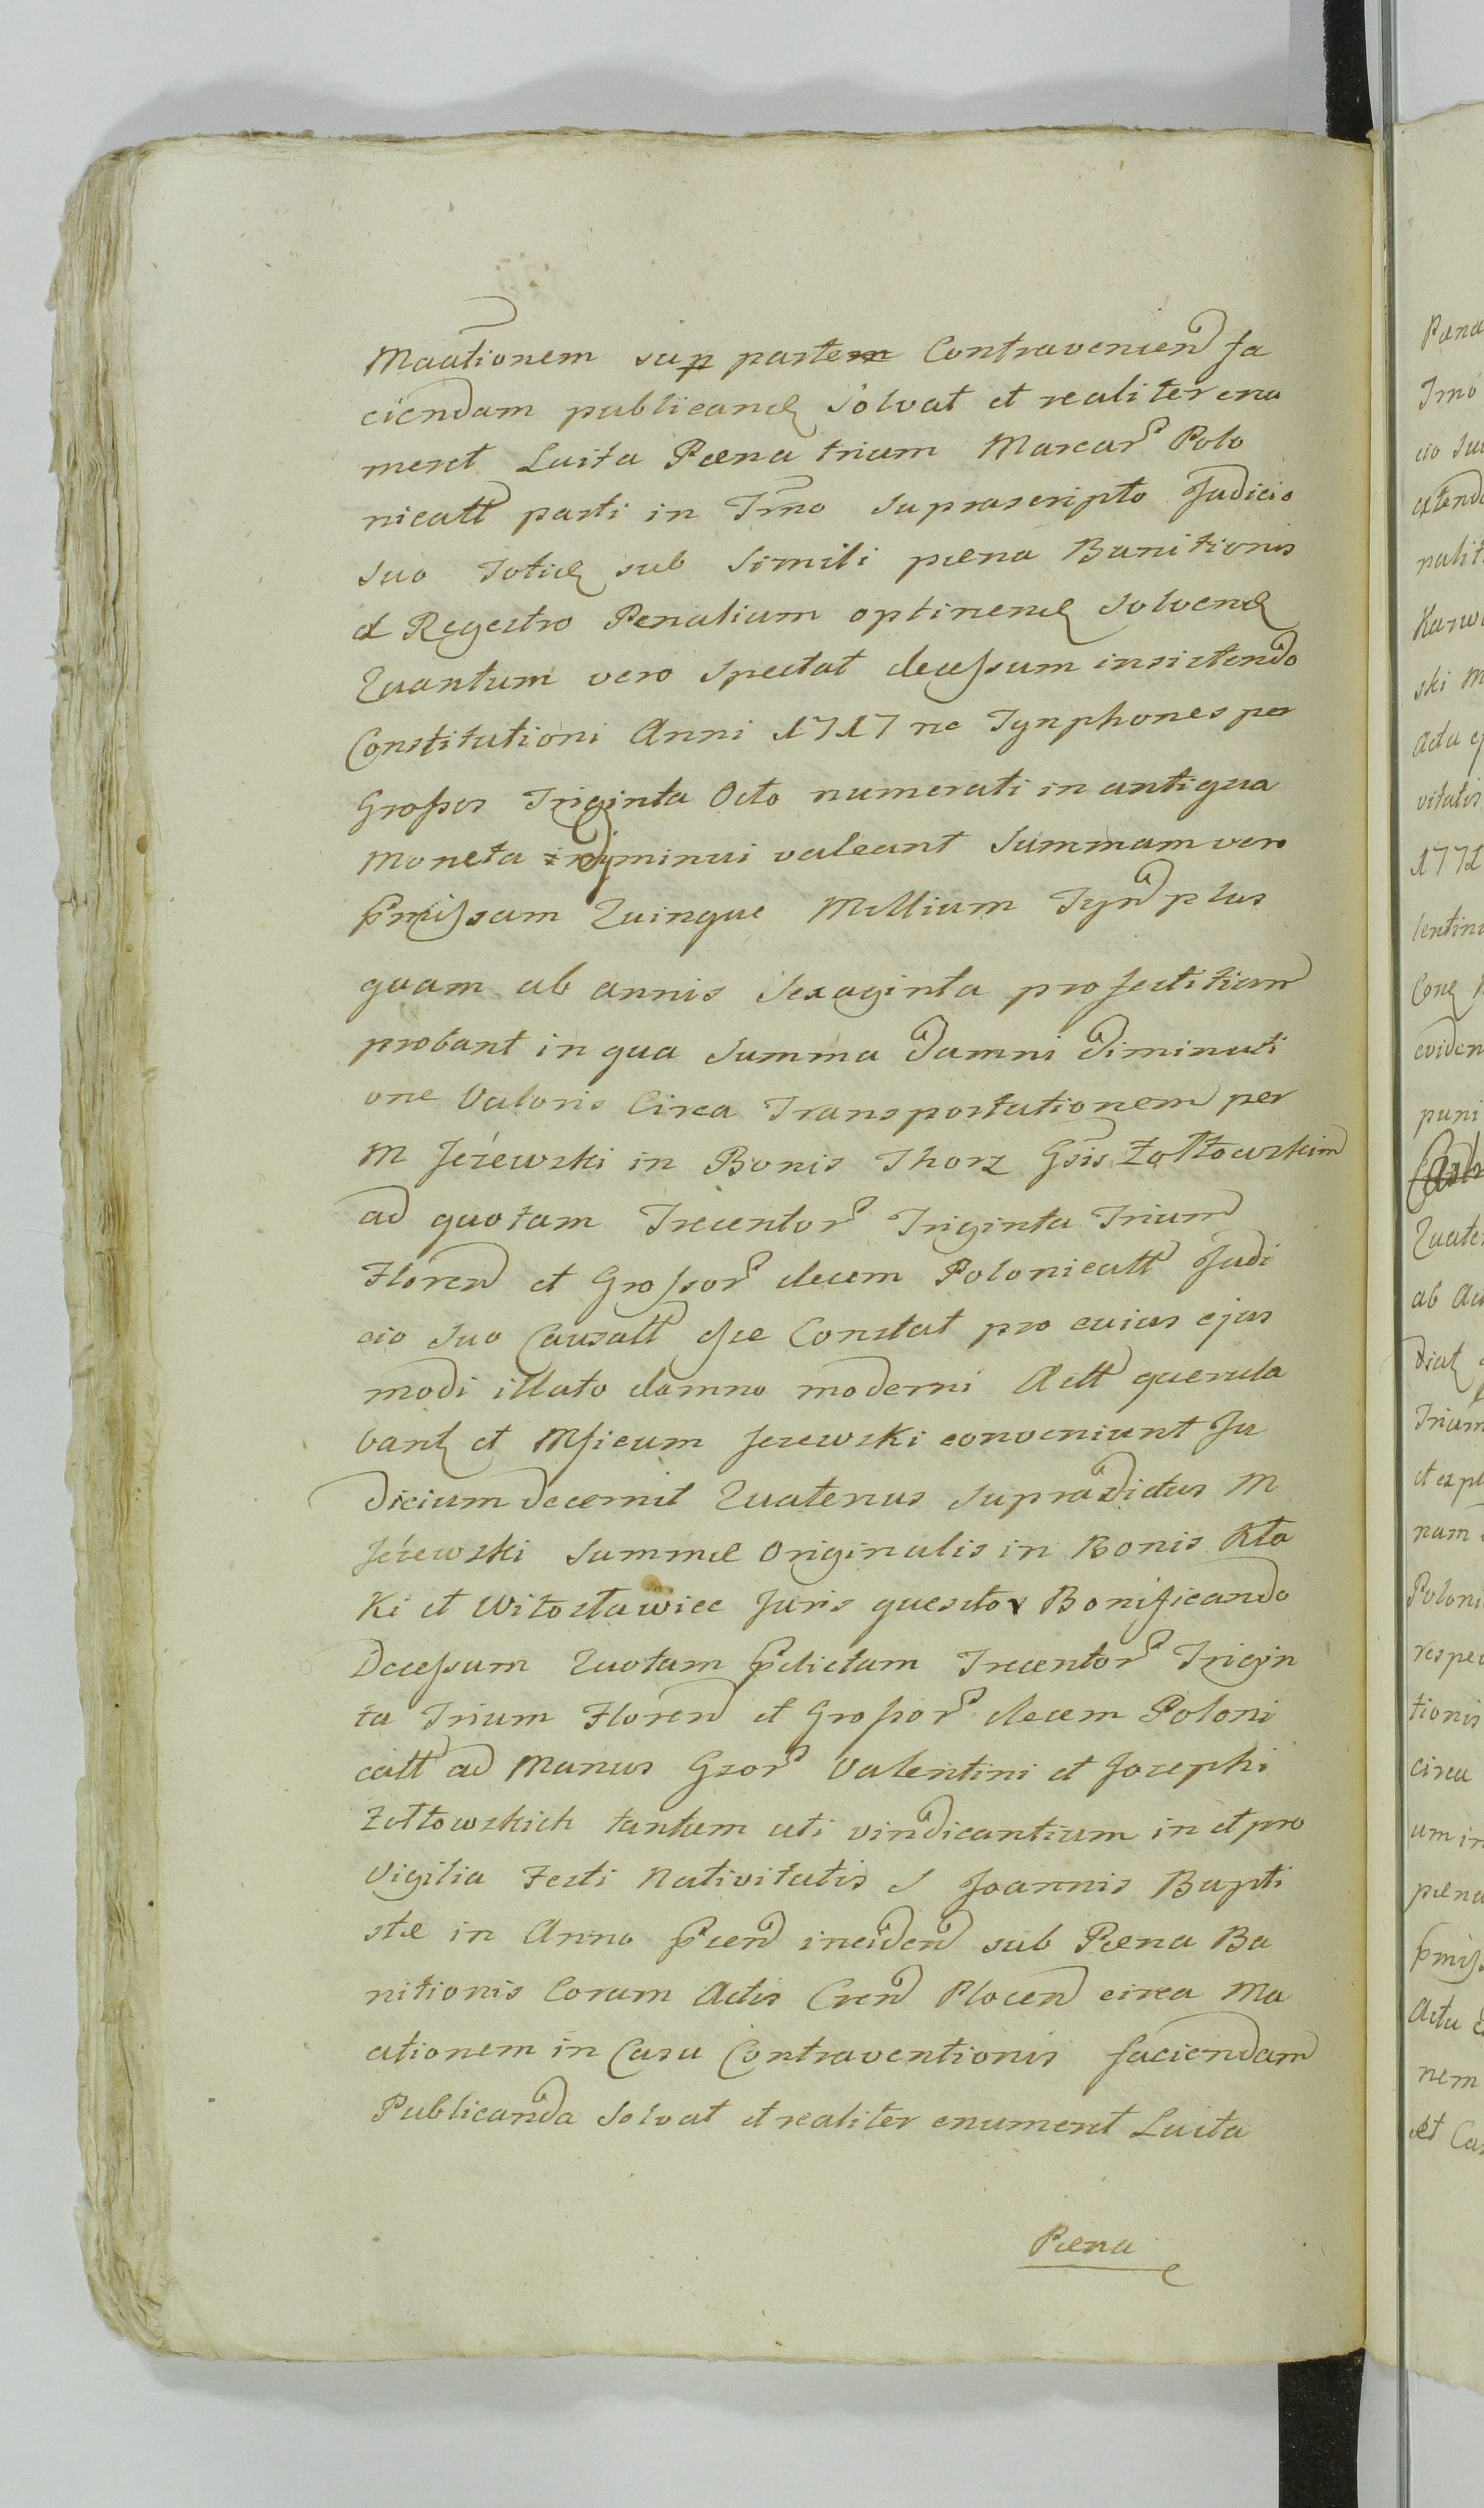 Maationem sup parte Contravenien fa
ciendam publicand solvat et realiter enu
meret Luita Pæna trium Marcar Polo
nicall parti in Trno suprascripto Judicio
suo Totid sub simili pæna Banitionis
et Regestro Penalium optinend solvend
Quantum vero spectat decessum insistendo
Constitutioni Anni 1717 ne Tynphones per
Grossos Triginta Octo numerati in antiqua
Moneta diminui valeant Summam vero
pmissam Quinque Millium Tyn plus
quam ab annis Sexaginta profectitiam
probant in qua Summa damni diminuti
one Valoris Circa Transportationem per
M Jeżewski in Bonis Thorz Gsis Żółtowskim
ad quotam Trecentor Triginta Trium
Floren et Grossor decem Polonicall Judi
cio suo Causall esse Constat pro cuius ejus
modi illato damno moderni Actt querula
bant et Msicum Jezewski conveniunt Ju
dicium decernit Quatenus supradictus M
Jeżewski Summæ Originalis in Bonis Kło
ki et Witosławice Juris quesitor Bonificando
Decessum Quotam pdictam Trecentor Trigin
ta Trium Floren et Grossor decem Poloni
call ad Manus Gsor Valentini et Josephi
Żółtowskich tantum uti vindicantium in et pro
Vigilia Festi Nativitatis S Joannis Bapti
stæ in Anno pcen inciden sub Pæna Ba
nitionis Coram Actis Cren Plocen circa Ma
ationem in Casu Contraventionis faciendam
Publicanda solvat et realiter enumeret Luita
Pæna